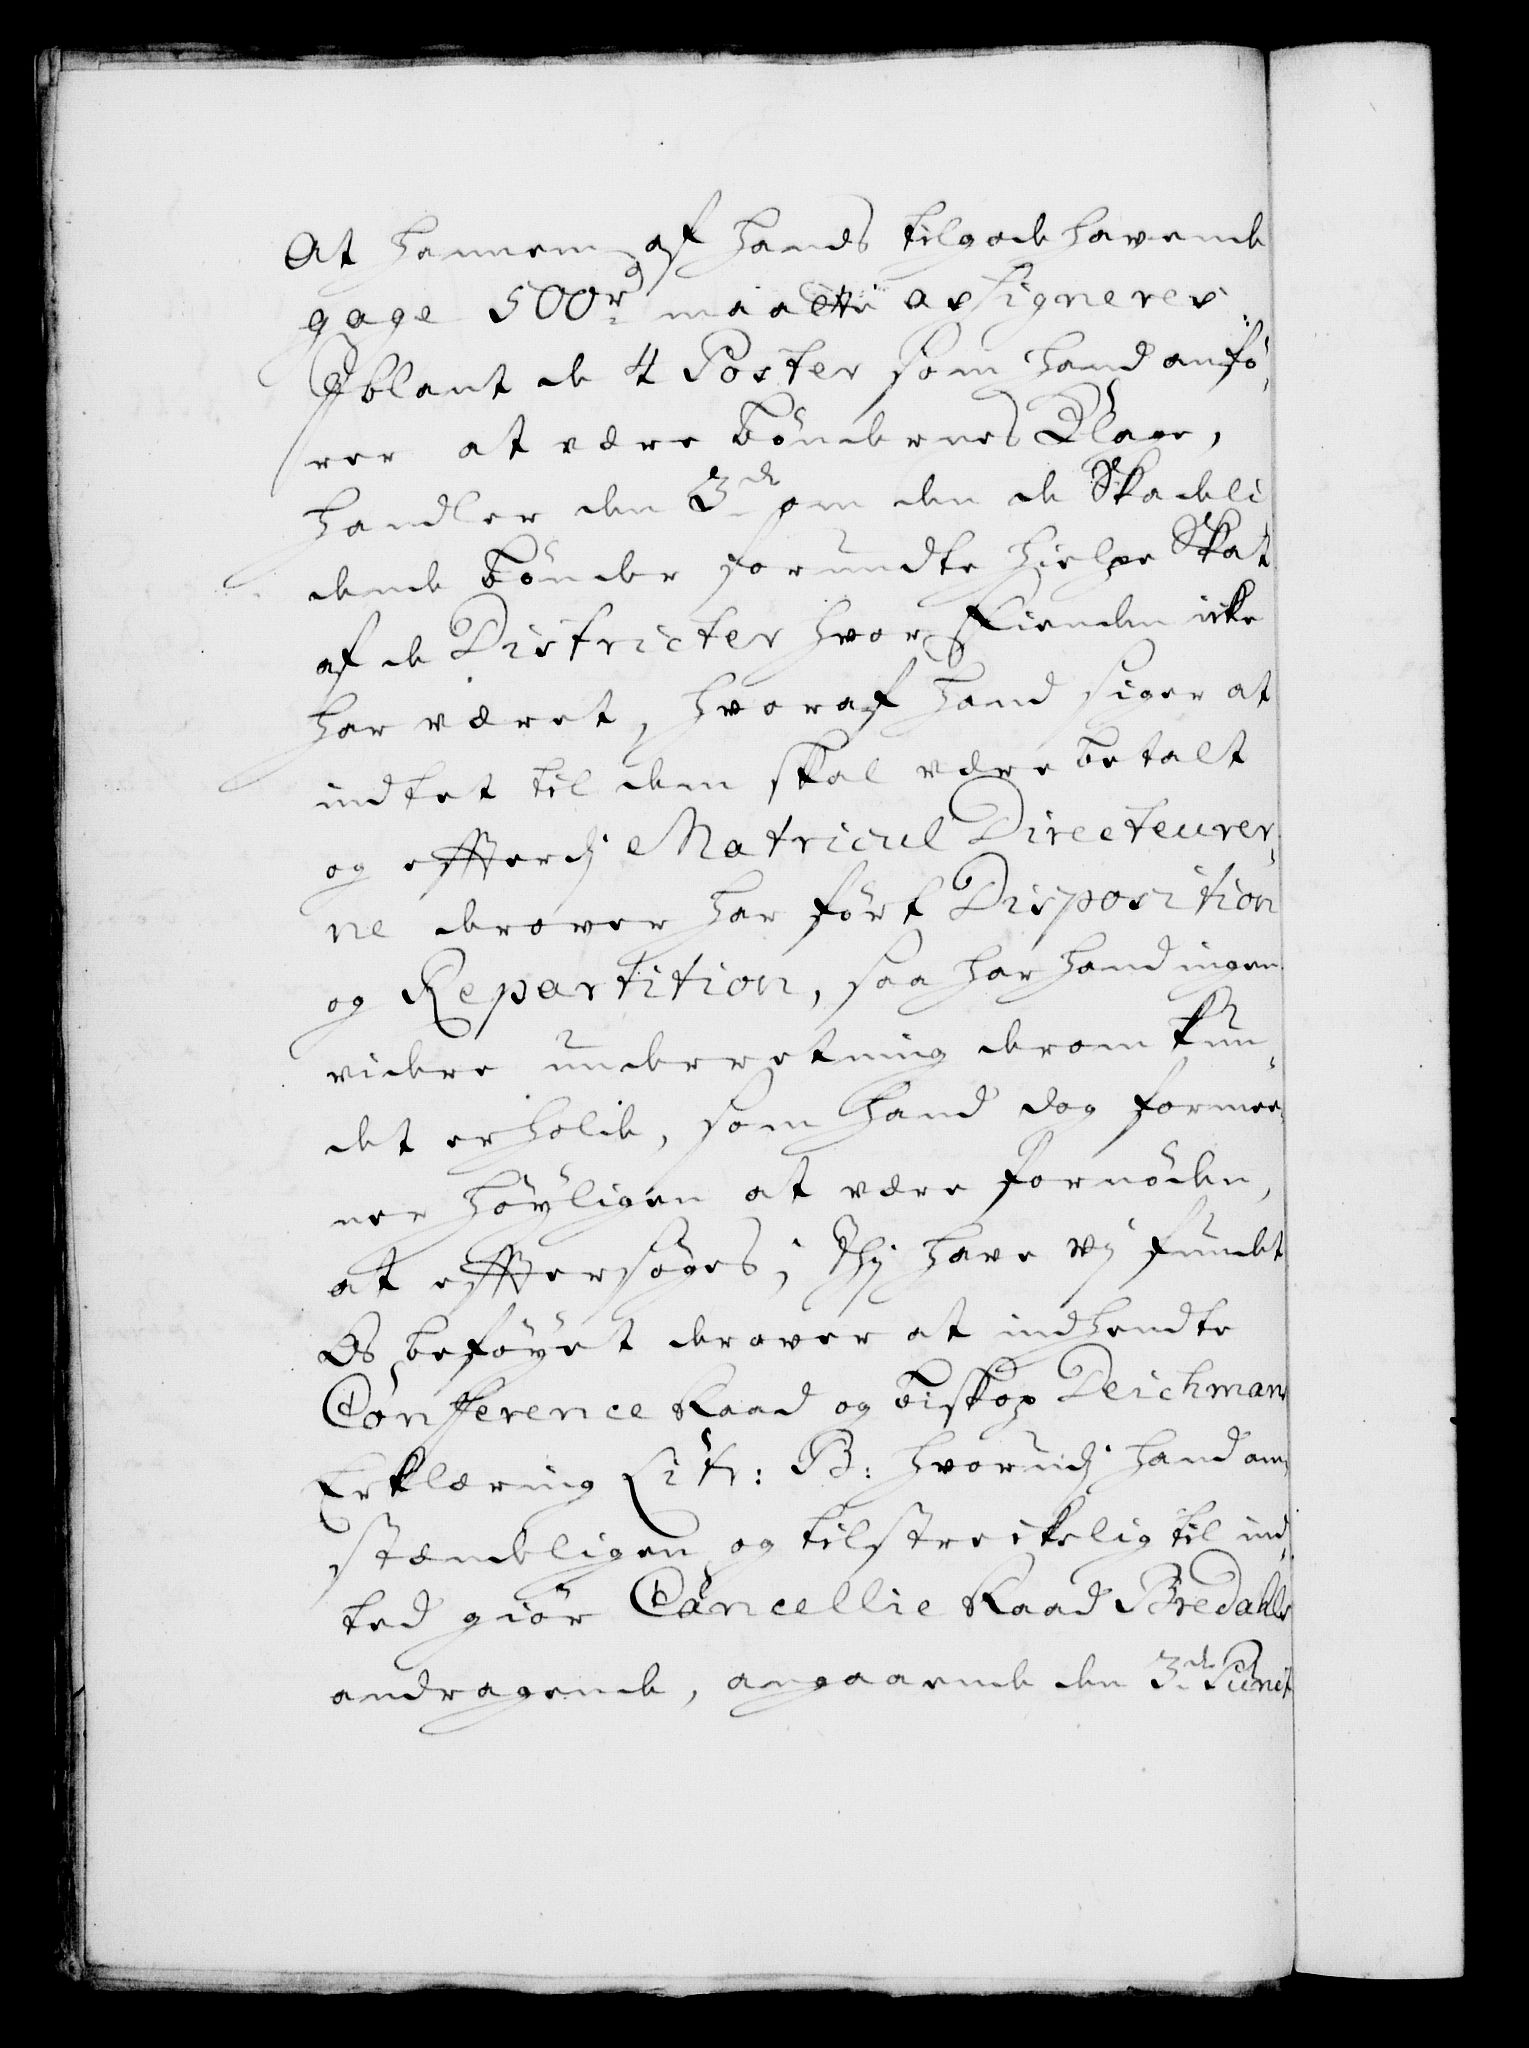 At hannem af hands tilgode havende
gage 500r maatte assigneres.
Iblant de 4 Poster som hand anfö,
rer at være böndernes Klage,
handler den 3de om den de Skadeli
dende bönder forundte hielpe Skat
af de Districter hvor Fienden icke
har været, hvoraf hand siger at
indtet til dem skal være betalt
og efftterdj Matricul Directeurer,
ne derover har fört Disposition
og Repartition, saa har hand ingen
videre underretning derom kun,
det erholde, som hand dog formee,
ner höyligen at være fornöden,
at efftersöges; Thj have vj fundet
Os beföyet derover at indhendte
Conference Raad og biskop Deichmans
Erklæring Litr: B: hvorudj hand om,
stændeligen og tilstreckelig til ind,
ted giör Cancellie Raad Bredahls
andragende, angaaende den 3de Punct